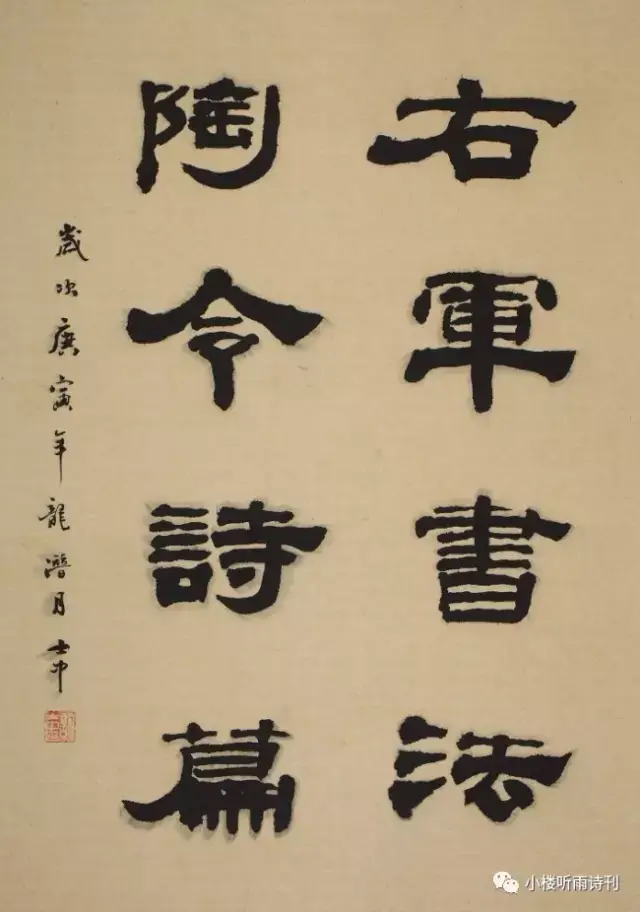 右軍書法
陶令詩篇
歲次庚寅年龍潛月士中
小楼听雨诗刊